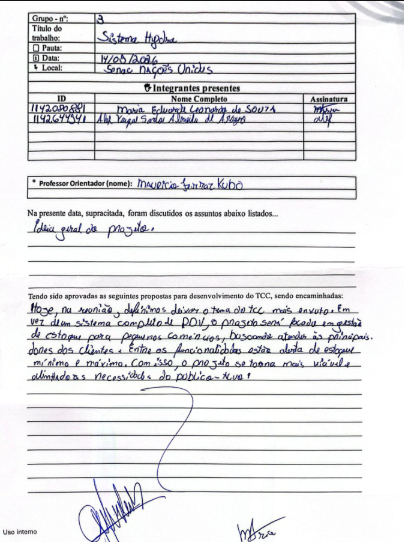 Grupo - nº: 3
Título do trabalho: Sistema Hypolux
Pauta:
Data: 14/05/2026
Local: Senac Nações Unidas
Integrantes presentes
ID Nome Completo Assinatura
1142080881 Maria Eduarda Leonardo de Souza Maria
Alex Yago Santos Almeida de
* Professor Orientador (nome): Mauricio Kubo
Na presente data, supracitada, foram discutidos os assuntos abaixo listados...
Ideia geral do projeto.
Tendo sido aprovadas as seguintes propostas para desenvolvimento do TCC, sendo encaminhadas:
Hoje, na reunião, definimos deixar o tema do tcc mais enxuto. Em
vez de um sistema completo de PDV, o projeto será focado em gestão
de estoque para pequenos comércios, buscando atender às principais
dores dos clientes. Entre as funcionalidades estão alerta de estoque
mínimo e máximo. Com isso, o projeto se torna mais viável e
necessidades do público-alvo!
Uso interno
Maria